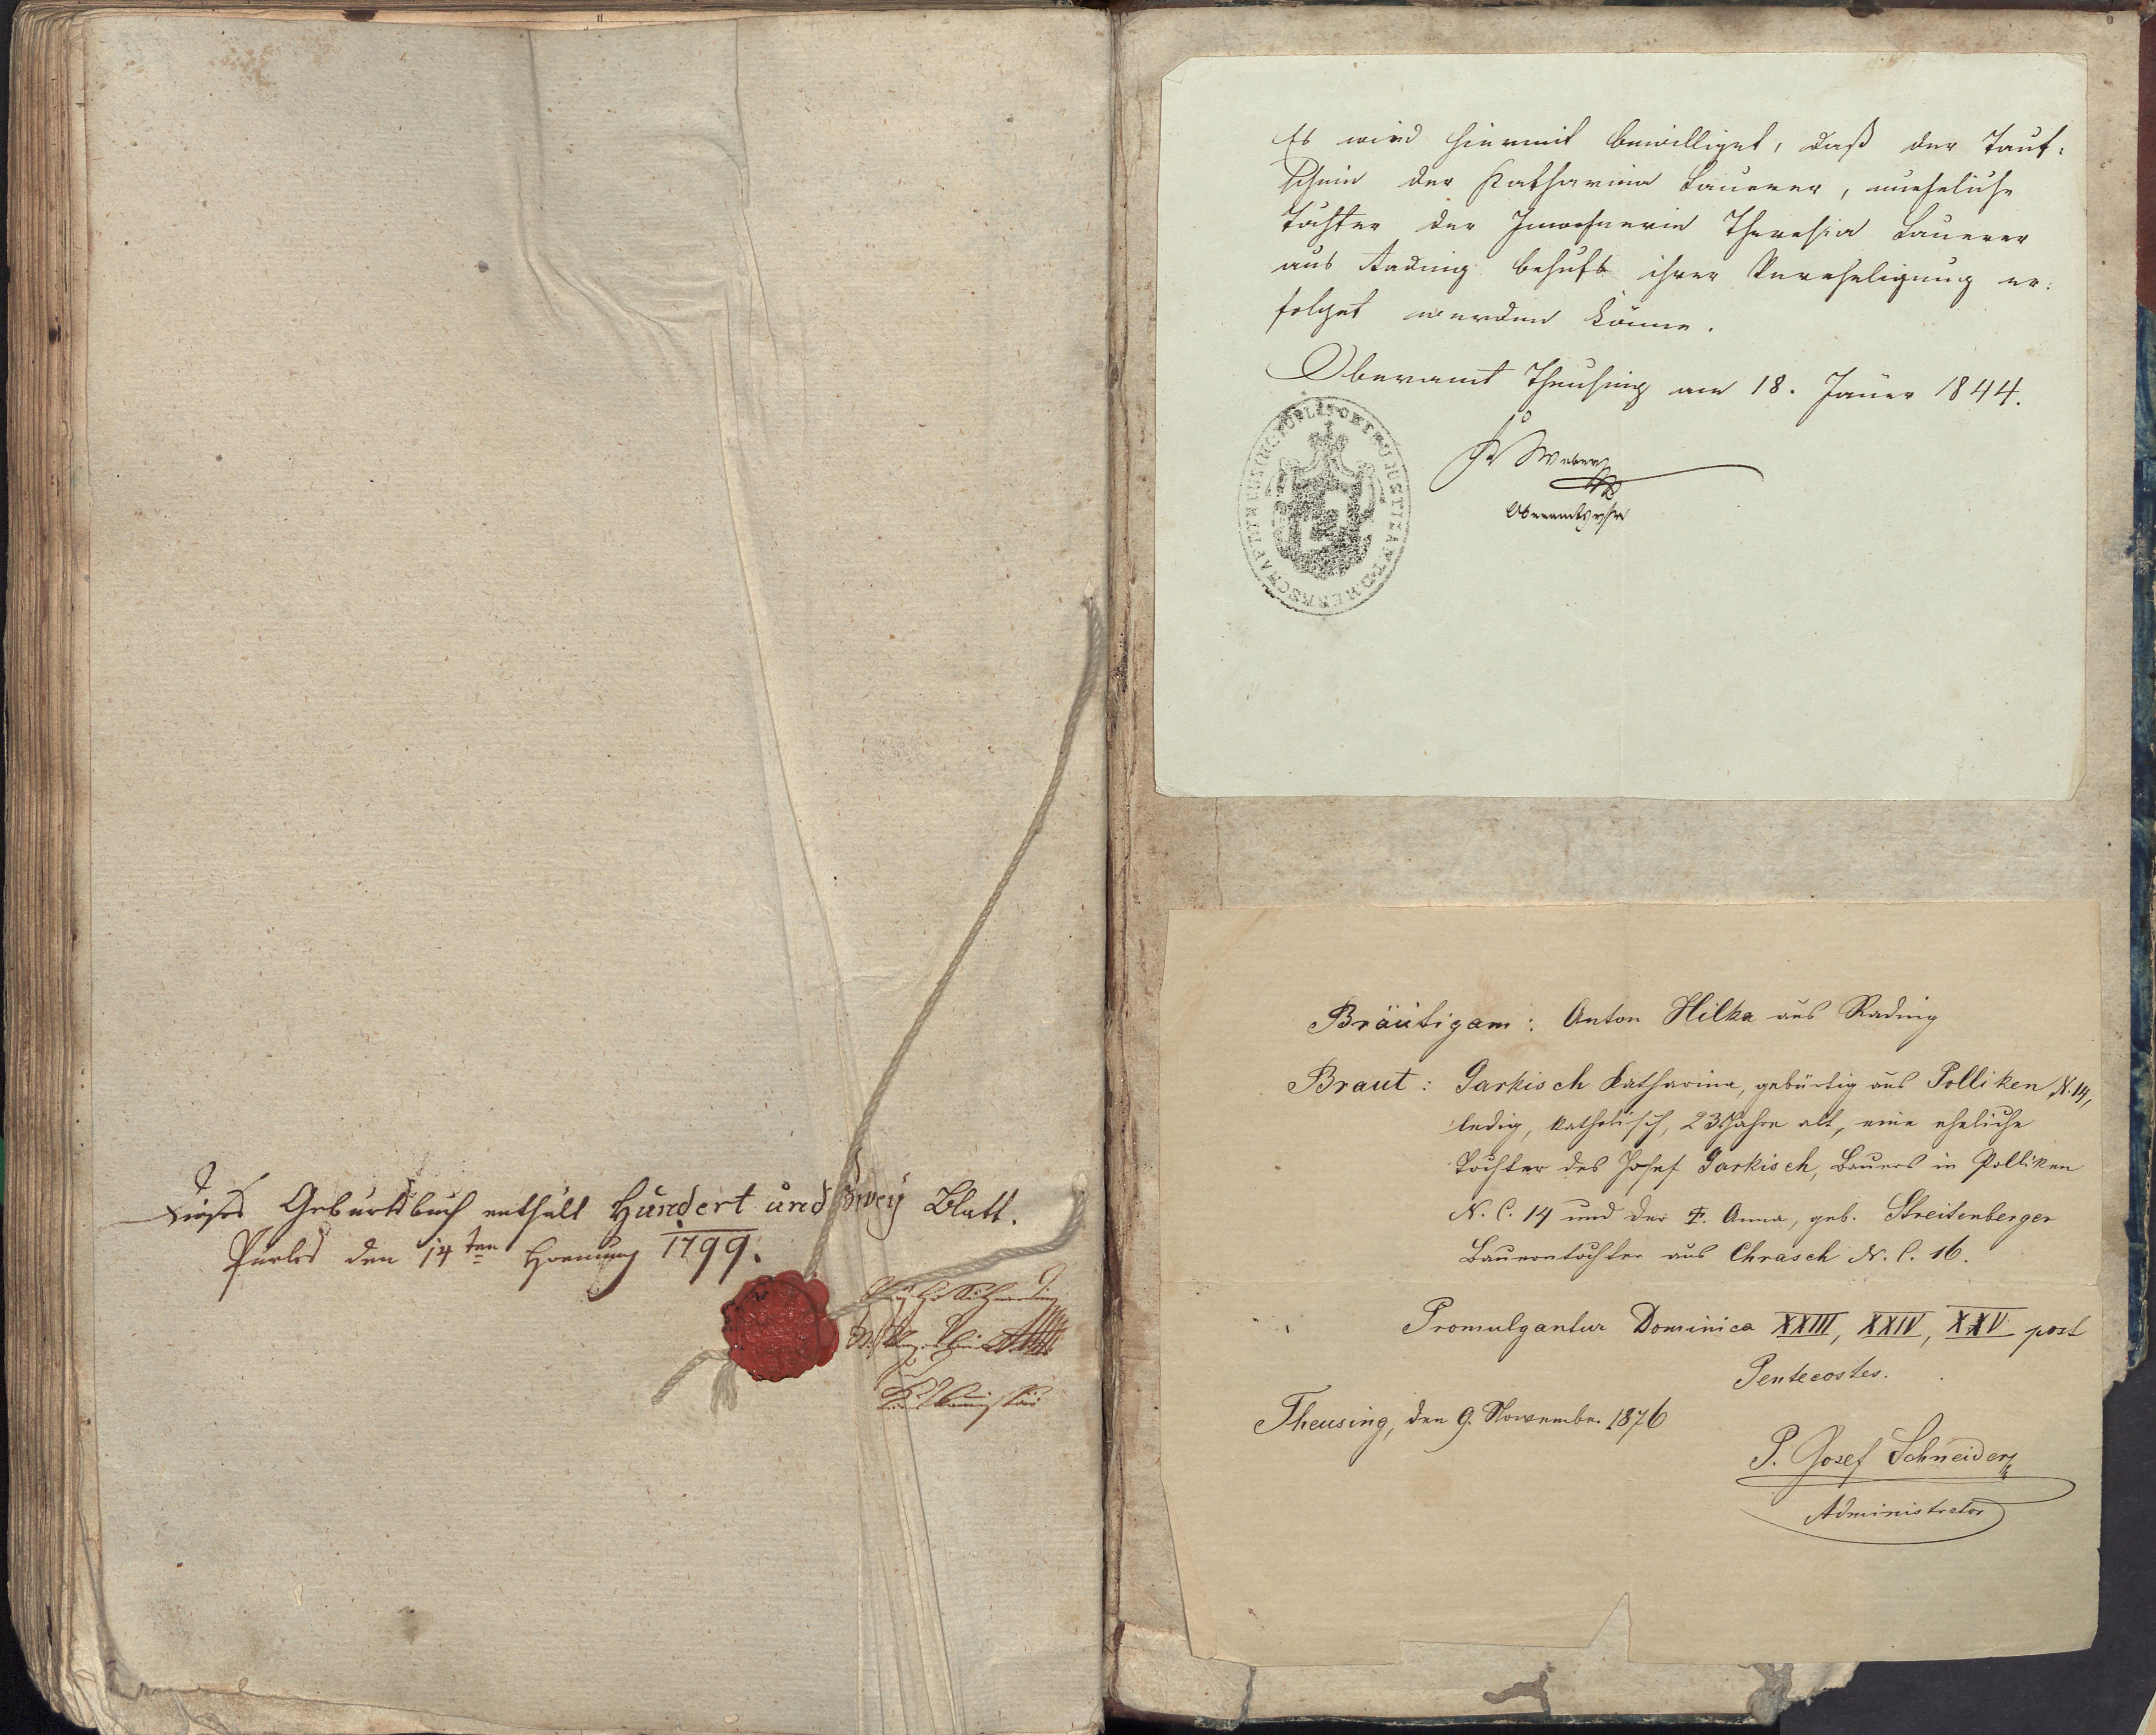 Dieses Geburtsbuch enthält Hundert und Zwey Blatt.
Purles den 14ten Hornung 1799.
Es wird hiermit bewilliget, daß der Tauf-
schein der Katharina Lauerer, uneheliche
Tochter der Inwohnerin Theresia Lauerer
aus Rading behufs ihrer Verehelichung er-
folget werden könne.
Oberamt Theusing am 18. Jäner 1844.
Weber
FÜRSTL. OBER U JUSTITZAMT D. HERRSCHAFT THEUSING
Bräutigam: Anton Hilka aus Rading
Braut: Garkisch Katharina, gebürtig aus Polliken N. 14,
ledig, katholisch, 23 Jahre alt, eine eheliche
Tochter des Josef Garkisch, Bauers in Polliken
N. C. 14 und der F. Anna, geb. Streitenberger
Bauerstochter aus Chrasch N. C. 16.
Promulgantur Dominica XXIII, XXIV, XXV post
Pentecostes.
Theusing, den 9. November 1876
P. Josef Schneider
Administrator